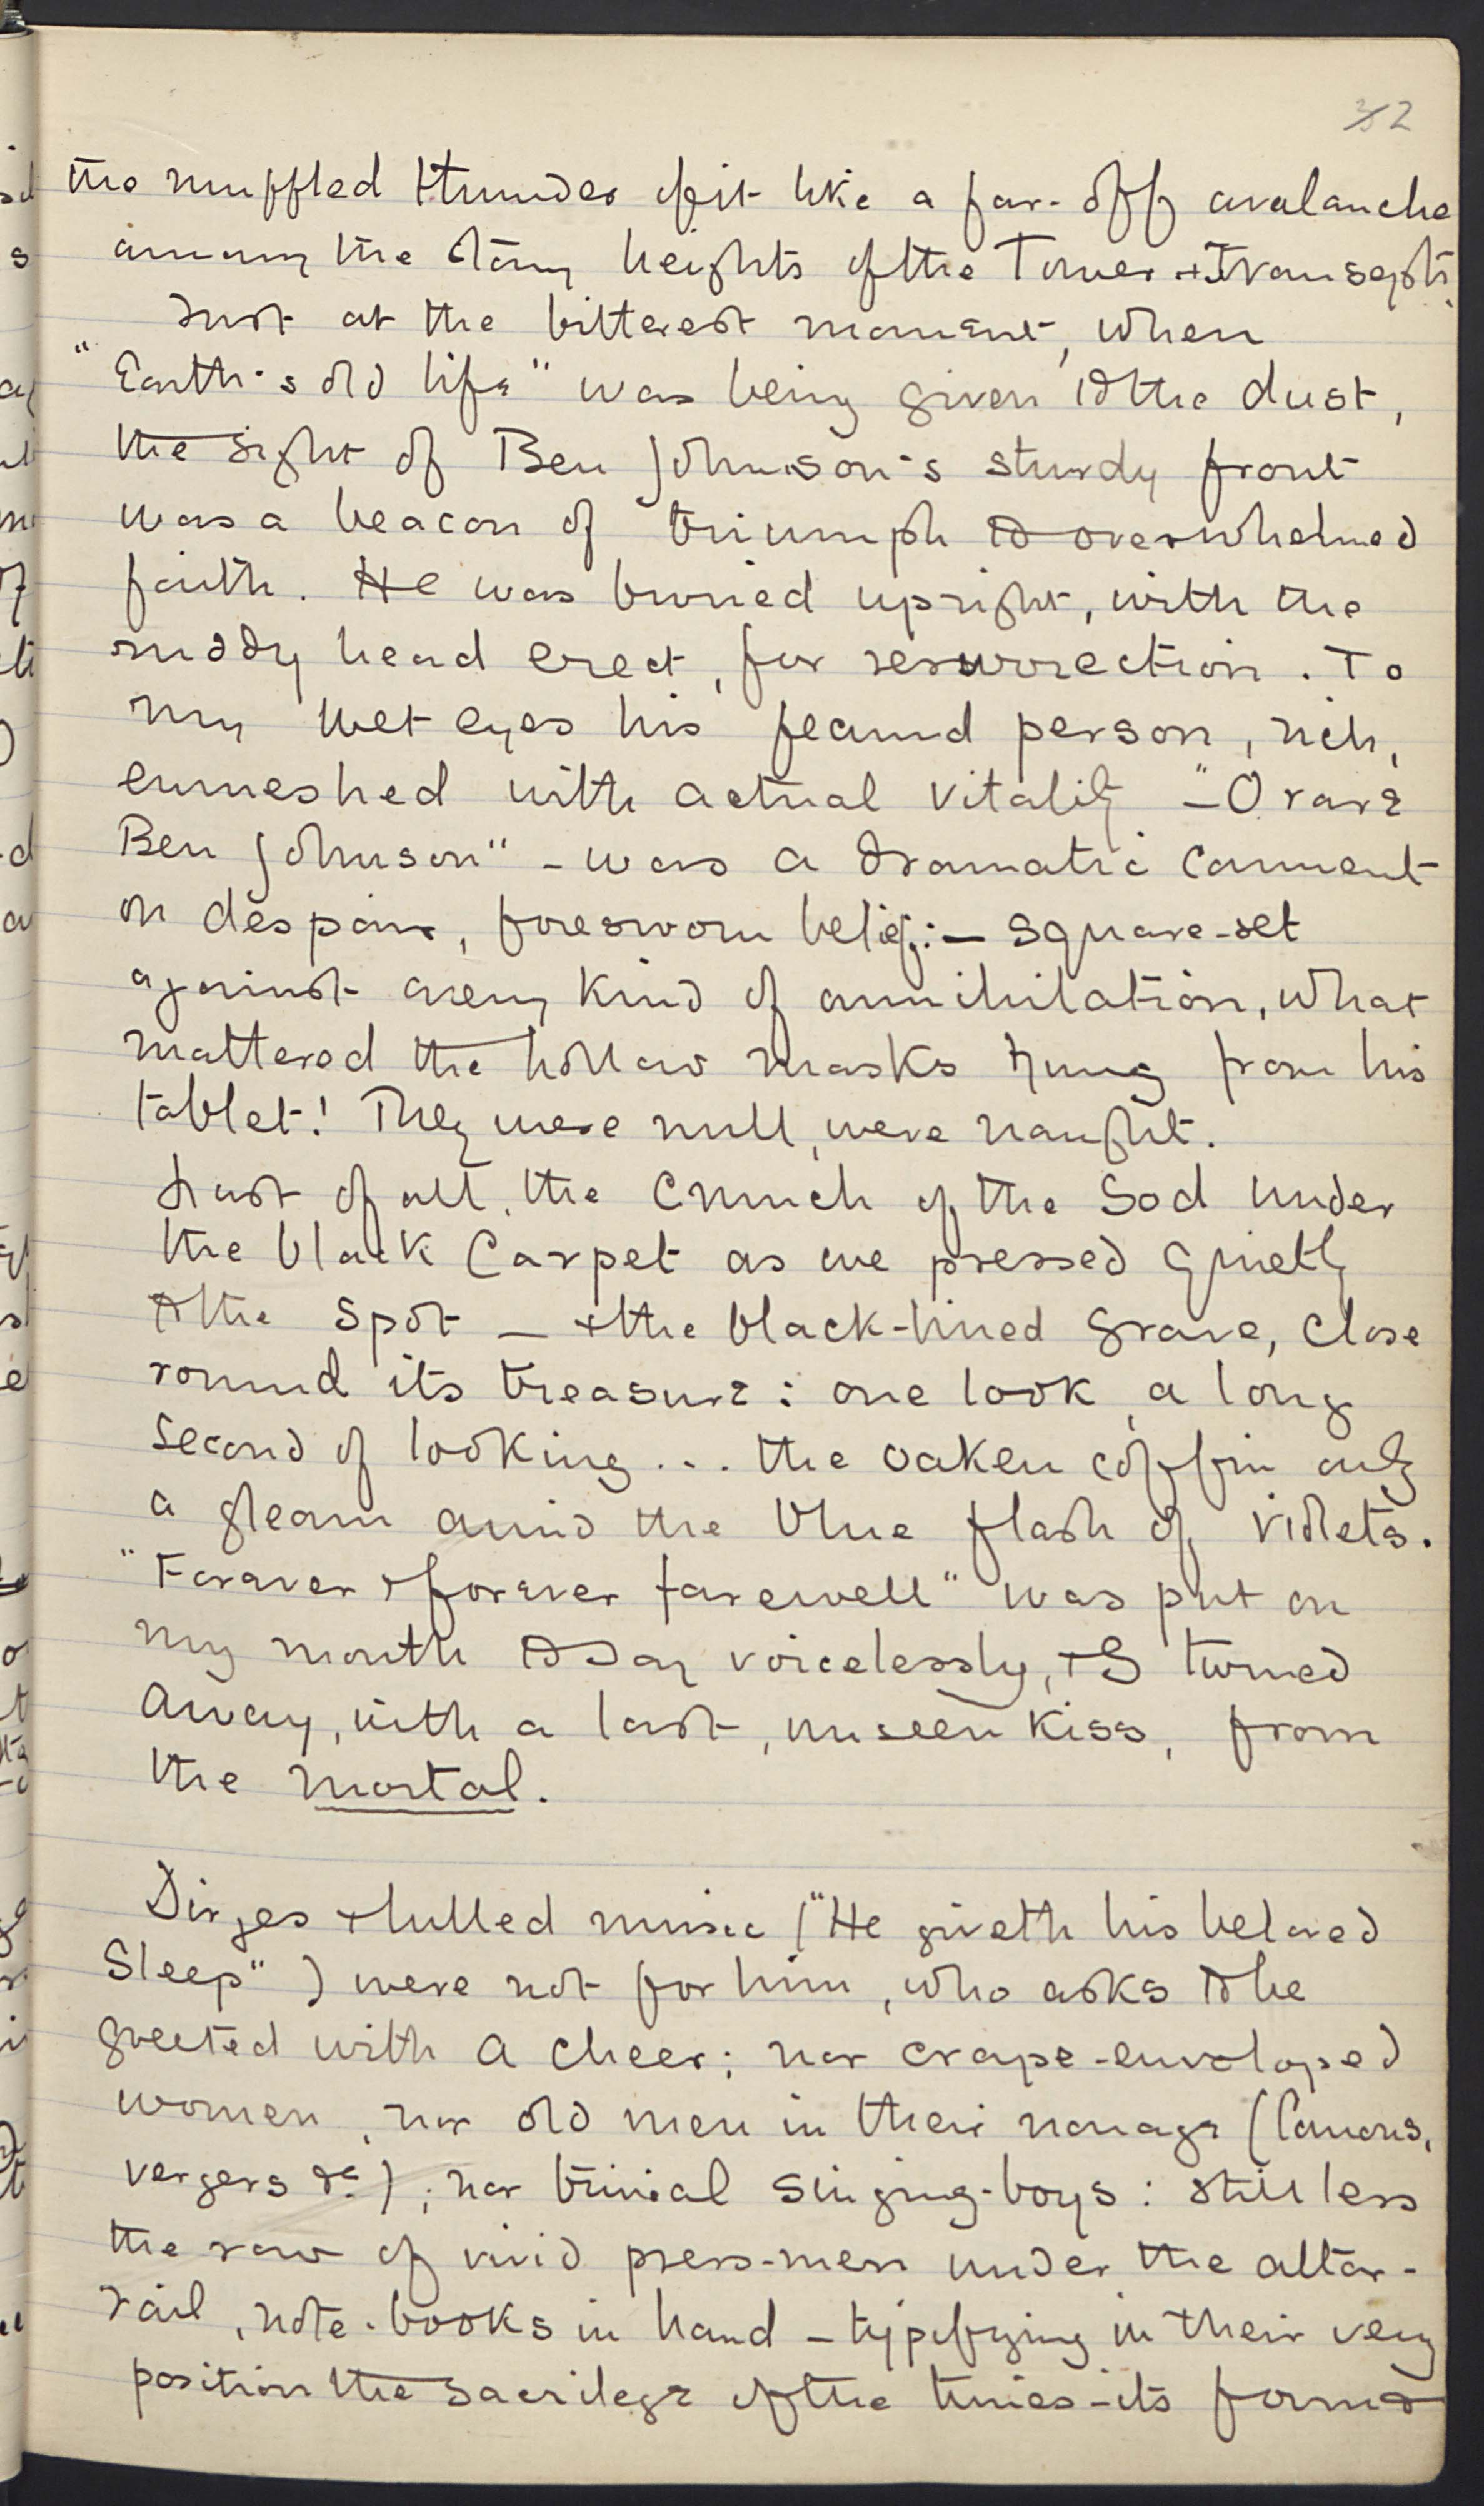 32
the muffled thunder of it like a far-off avalanche
among the stony heights of the Tower & Transepts.
Just at the bitterest moment, when
"Earth's old life" was being given to the dust,
the sight of Ben Johnson's sturdy front
was a beacon of triumph to overwhelmed
faith. He was buried upright, with the
ruddy head erect, for resurrection. To
my wet eyes his person, rich,
enmeshed with actual vitality – "O rare
Ben Johnson" – was a dramatic comment
on despair, foresworn belief: – square-set
against every kind of annihilation, what
mattered the hollow masks hung from his
tablet! They were null, were naught.
Last of all, the crunch of the sod under
the black carpet as we pressed quietly
to the spot – & the black-lined grave, close
round its treasure: one look, a long
second of looking... the oaken coffin only
a gleam amid the blue flash of violets.
"Forever & forever farewell" was put on
my mouth to say voicelessly, & I turned
away, with a last, unseen kiss, from
the mortal.
Dirges & lulled music ("He giveth his beloved
Sleep") were not for him, who asks to be
greeted with a cheer; nor crape-enveloped
women, nor old men in their nonage (Canons,
vergers &c); nor trivial singing-boys: still less
the row of vivid press-men under the altar-
rail, note-books in hand – typifying in their very
position the sacrilege of the times – its